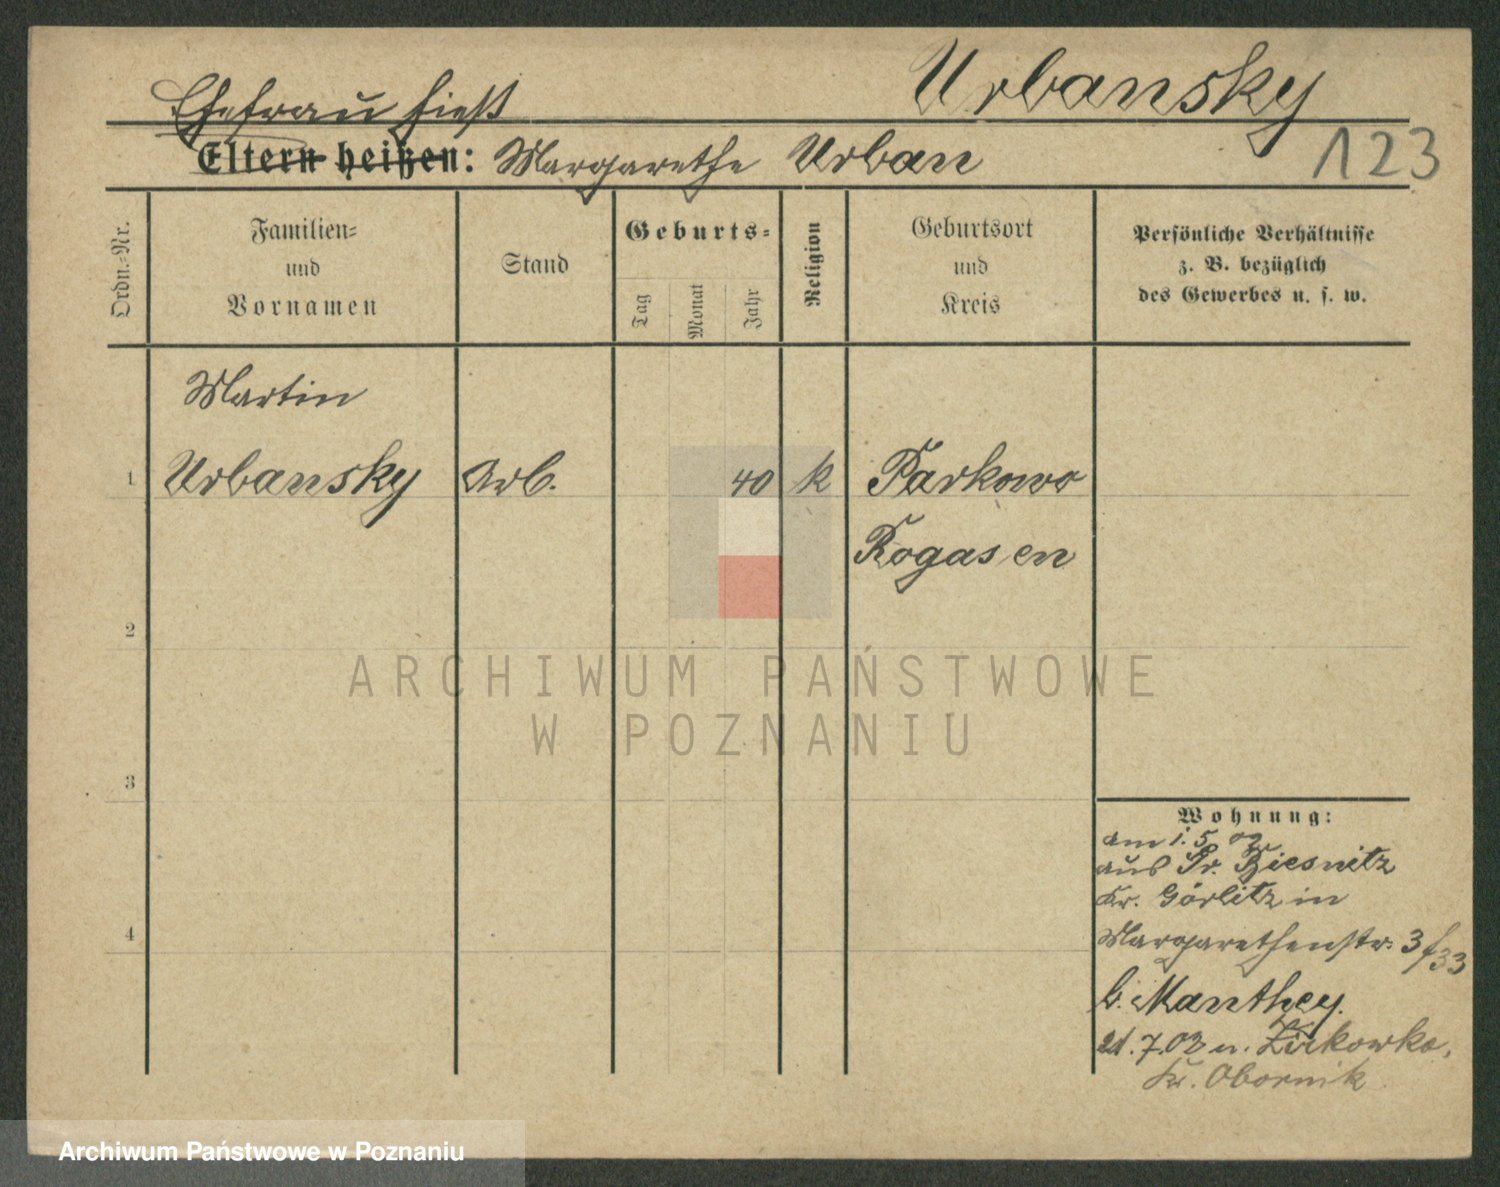 Urbansky
Ehefrau hieß
Eltern heißen: Margarethe Urban
123
Ordn.-Nr.
Familien-
und
Vornamen
Stand
Geburts-
Tag
Monat
Jahr
Religion
Geburtsort
und
Kreis
Persönliche Verhältnisse
z. B. bezüglich
des Gewerbes u. s. w.
Martin
1 Urbansky Arb. 40 k Parkowo
Rogasen
2
3
4
Wohnung:
am 1.5.02
aus Gr. Biesnitz
Kr. Görlitz in
Margarethenstr. 3
b. Manthey.
21.7.02 n.
Kr. Obornik
ARCHIWUM PAŃSTWOWE
W POZNANIU
Archiwum Państwowe w Poznaniu